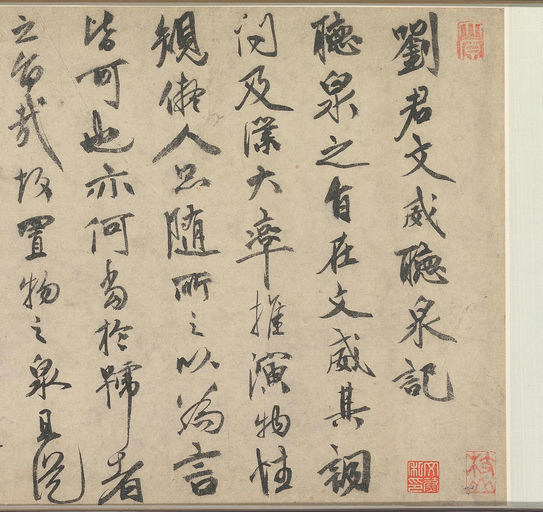 劉君文威聽泉記
聽泉之旨在文威其調
及大率推演物性
規人品随所之以為言
皆可也亦何當於歸者
之旨哉故置物之泉且從
枝山